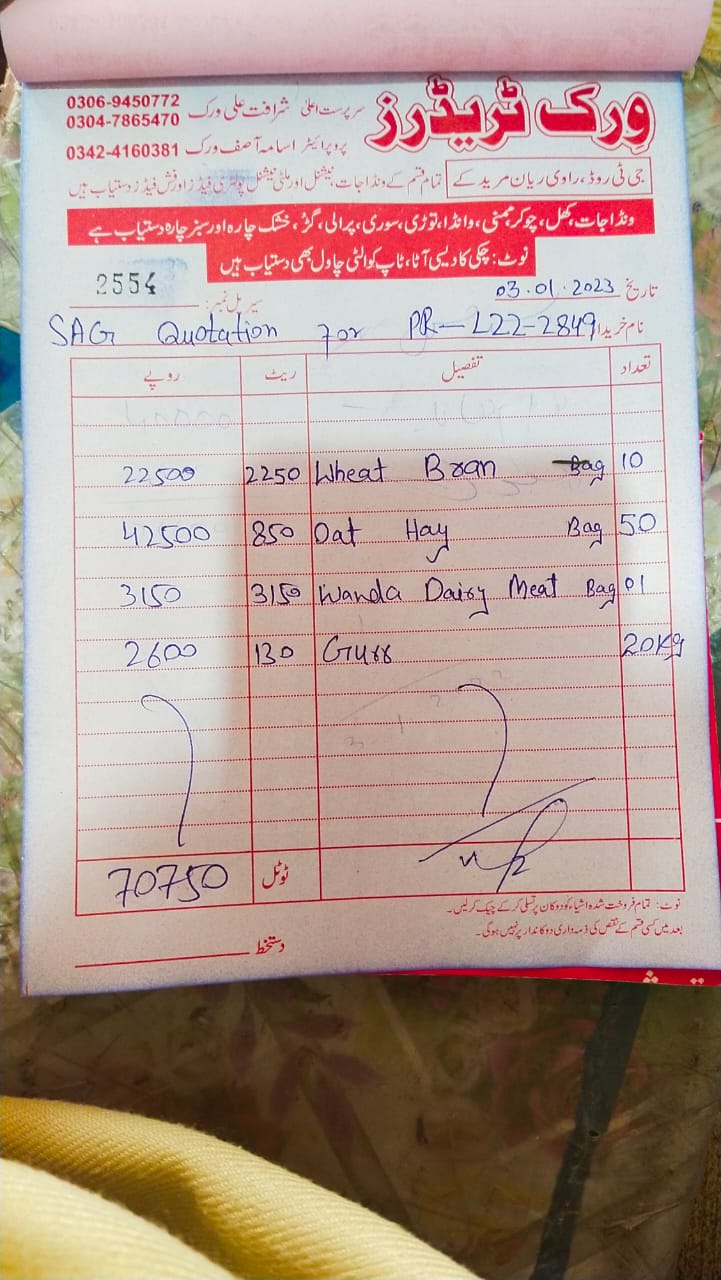 ورک ٹریڈرز
0306-9450772
0304-7865470
سرپرست اعلیٰ شرافت علی ورک
0342-4160381 پروپرائیٹر اسامہ آصف ورک
جی ٹی روڈ، راوی ریان مریدکے
تمام قسم کے ونڈا جات نیشنل اور ملٹی نیشنل پولٹری فیڈز اور فش فیڈز دستیاب ہیں
ونڈا جات، کھل، چوکر، ممنی، وانڈا، توڑی، سوری، پرالی، گڑ، خشک چارہ اور سبز چارہ دستیاب ہے
نوٹ: چکی کا دیسی آٹا، ٹاپ کوالٹی چاول بھی دستیاب ہیں
تاریخ 03.01.2023
سیریل نمبر: 2554
نام خریدار SAG Quotation For PR-L22-2849
تعداد تفصیل ریٹ روپے
22500 2250 Wheat Bran Bag 10
42500 850 Oat Hay Bag 50
3150 3150 Wanda Dairy Meat Bag 01
2600 130 Gurr 20Kg
70750 ٹوٹل
نوٹ: تمام فروخت شدہ اشیاء کو دوکان پر تسلی کر کے چیک کر لیں۔
بعد میں کسی قسم کے نقص کی ذمہ داری دوکاندار پر نہیں ہوگی۔
دستخط